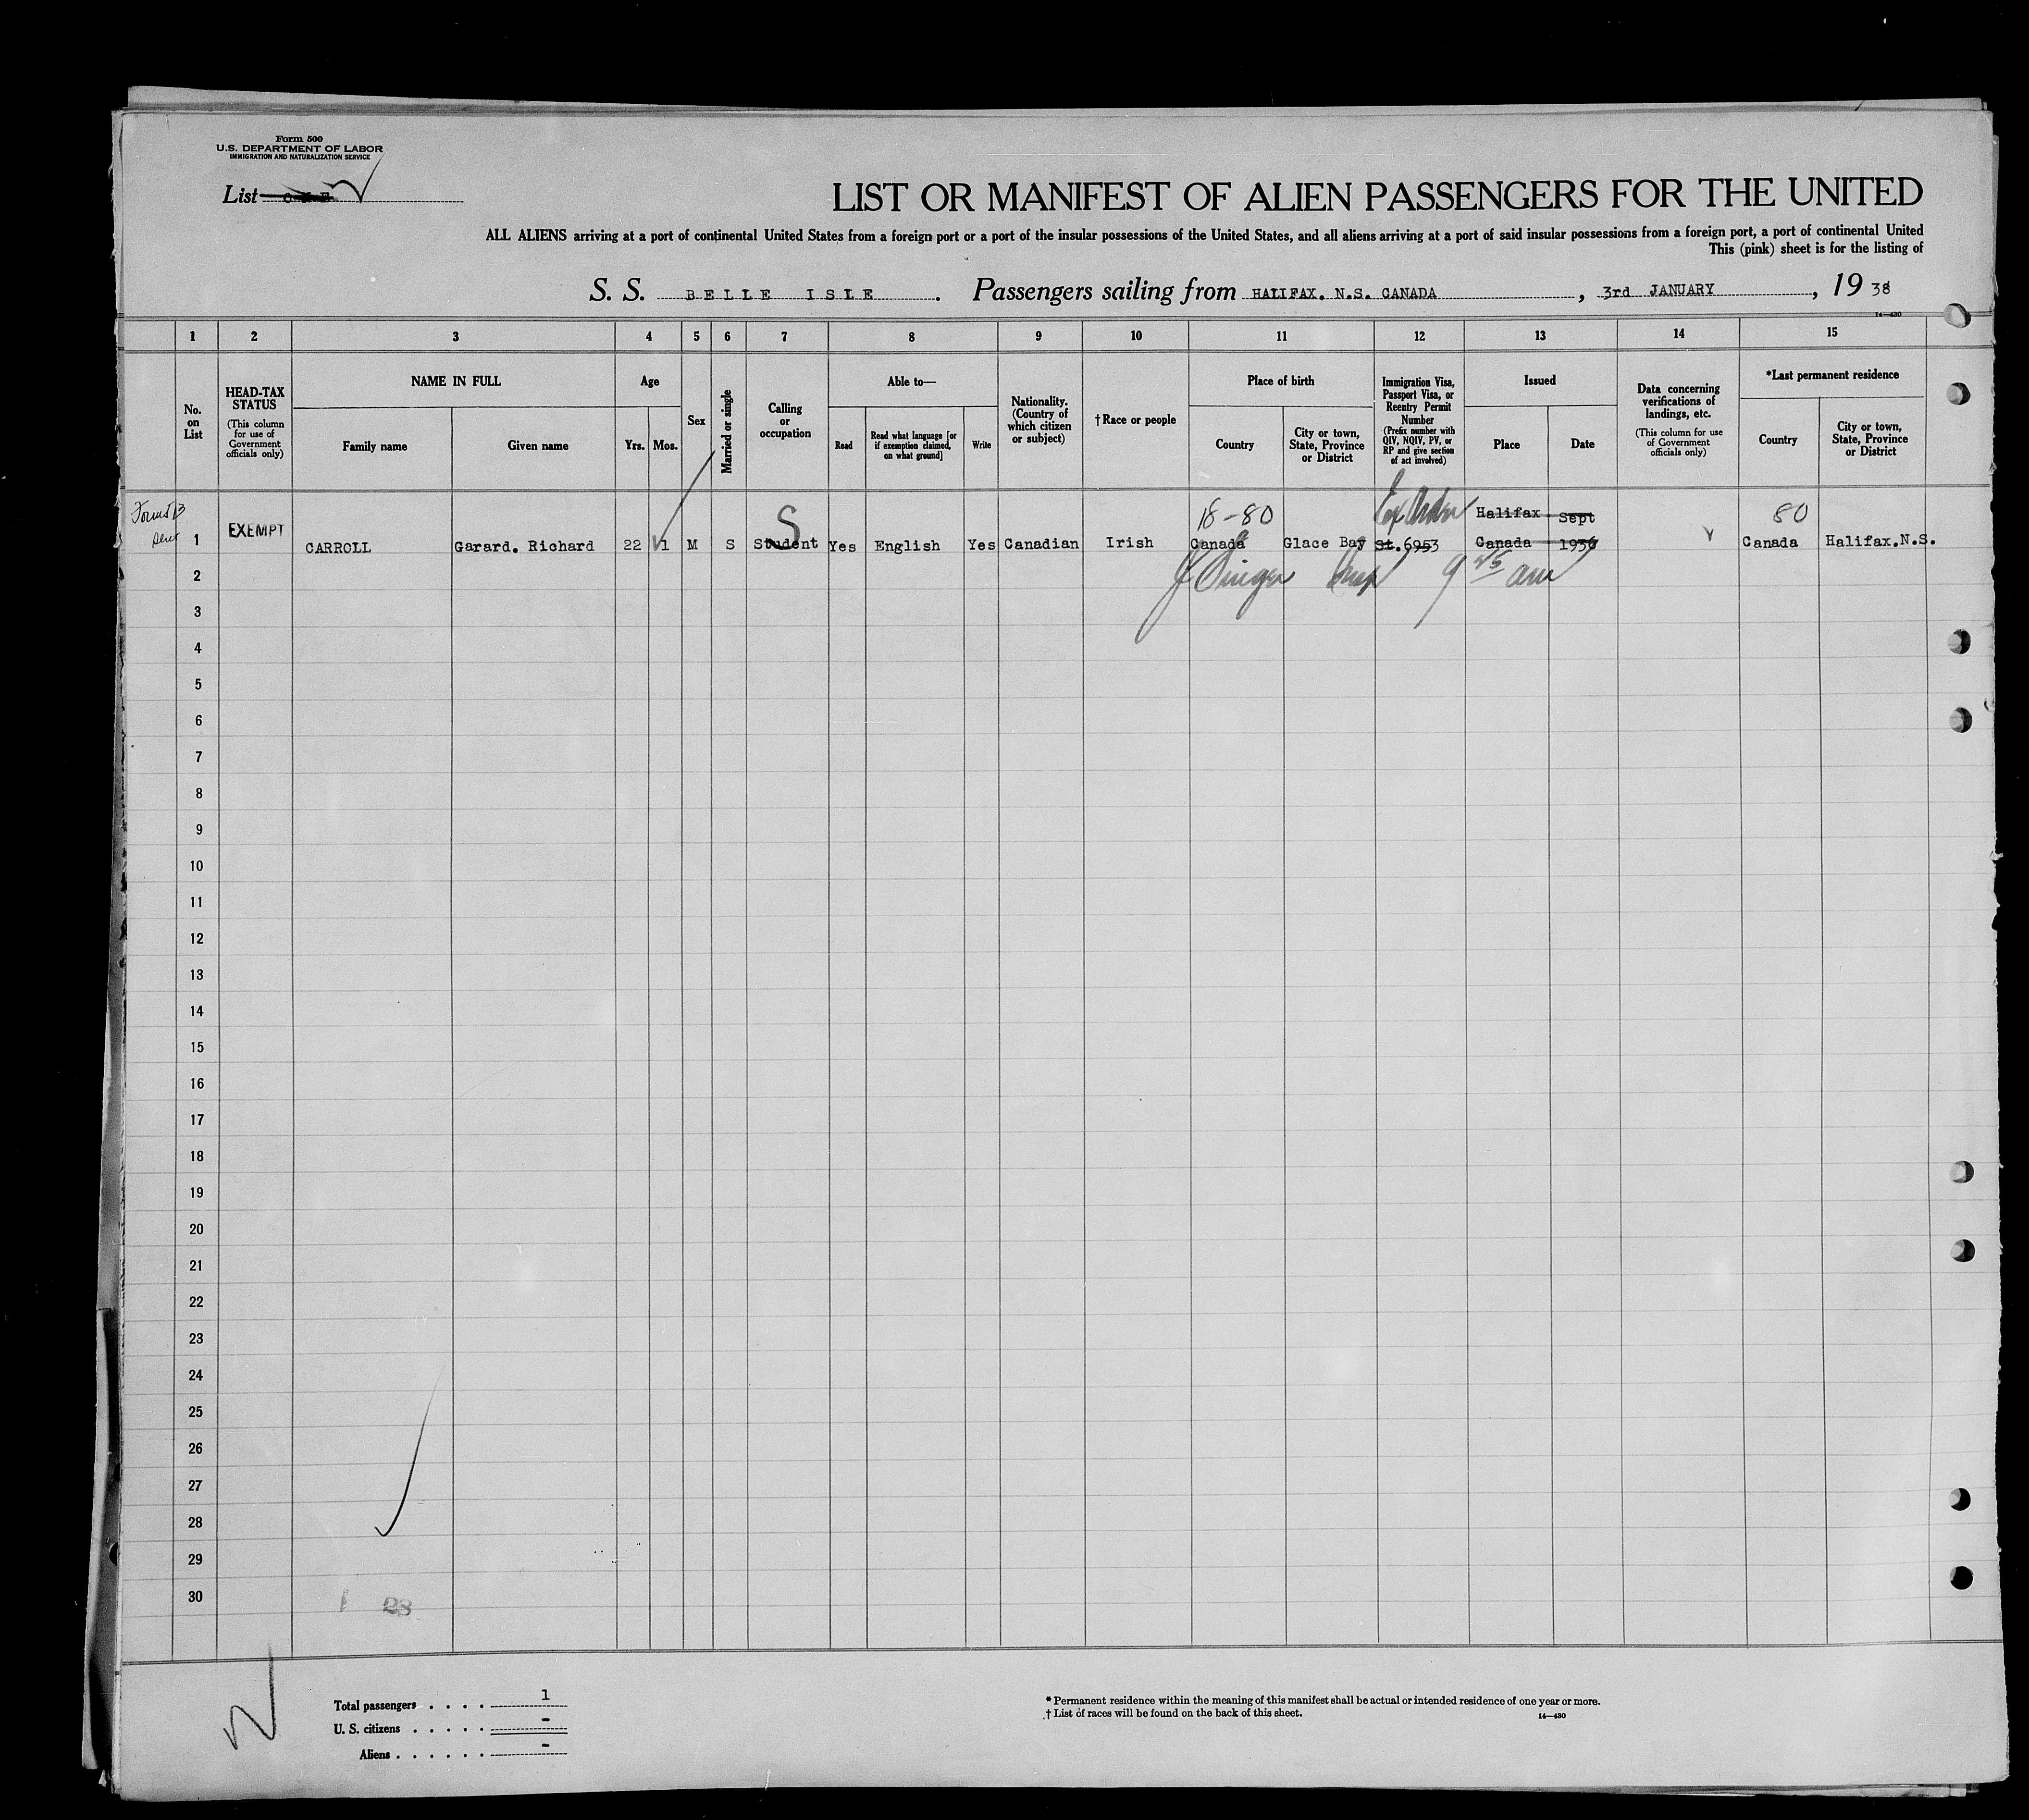 Form 500
U.S. DEPARTMENT OF LABOR
IMMIGRATION AND NATURALIZATION SERVICE
List ONE
LIST OR MANIFEST OF ALIEN PASSENGERS FOR THE UNITED
ALL ALIENS arriving at a port of continental United States from a foreign port or a port of the insular possessions of the United States, and all aliens arriving at a port of said insular possessions from a foreign port, a port of continental United
This (pink) sheet is for the listing of
S. S. BELLE ISLE . Passengers sailing from HALIFAX. N.S. CANADA , 3rd JANUARY , 19 38
14—430
1 2 3 4 5 6 7 8 9 10 11 12 13 14 15
No. on List
HEAD-TAX STATUS
(This column for use of Government officials only)
NAME IN FULL
Family name
Given name
Age
Yrs. Mos.
Sex
Married or single
Calling or occupation
Able to—
Read
Read what language [or if exemption claimed, on what ground]
Write
Nationality. (Country of which citizen or subject)
† Race or people
Place of birth
Country
City or town, State, Province or District
Immigration Visa, Passport Visa, or Reentry Permit Number
(Prefix number with QIV, NQIV, PV, or RP and give section of act involved)
Issued
Place
Date
Data concerning verifications of landings, etc.
(This column for use of Government officials only)
*Last permanent residence
Country
City or town, State, Province or District
18-80 Halifax Sept 80
1 EXEMPT CARROLL Garard. Richard 22 1 M S Student Yes English Yes Canadian Irish Canada Glace Bay St. 6953 Canada 1936 Canada Halifax.N.S.
S
2 9 45 am
3
4
5
6
7
8
9
10
11
12
13
14
15
16
17
18
19
20
21
22
23
24
25
26
27
28
29
30
28
Total passengers . . . . 1
U. S. citizens . . . . . -
Aliens . . . . . . -
* Permanent residence within the meaning of this manifest shall be actual or intended residence of one year or more.
† List of races will be found on the back of this sheet.
14—430